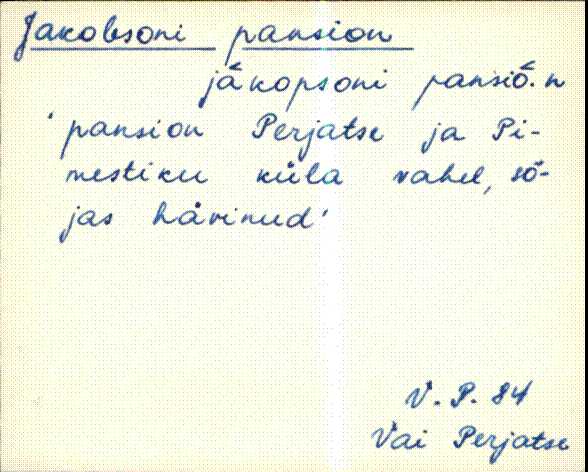 Jakobsoni pansion
jákopsoni pansió.n
'pansion Perjatse ja Pi-
mestiku küla vahel, sõ-
jas hävinud'
V. P. 84
Vai Perjatse